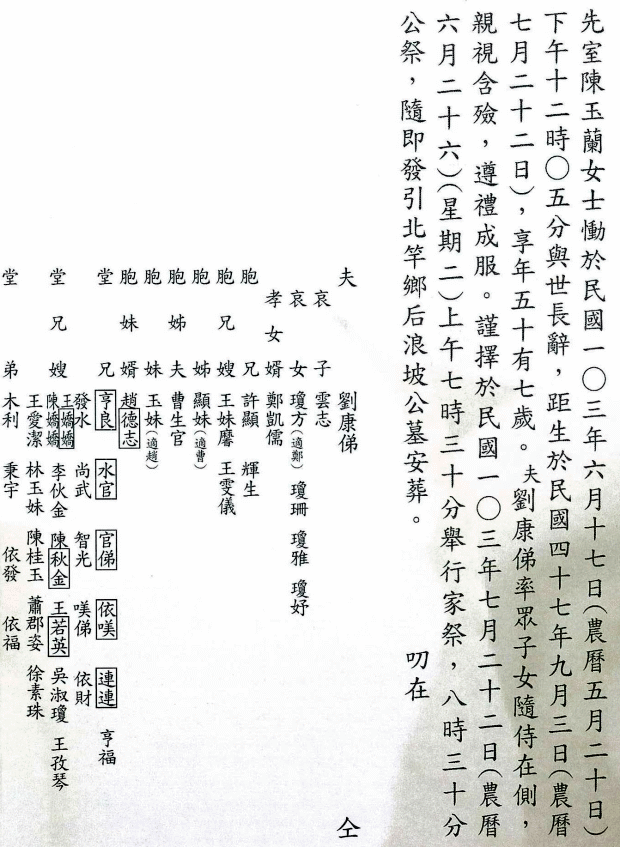 先室陳玉蘭女士慟於民國一〇三年六月十七日(農曆五月二十日)
下午十二時〇五分與世長辭，距生於民國四十七年九月三日(農曆
七月二十二日)，享年五十有七歲。夫劉康俤率眾子女隨侍在側，
親視含殮，遵禮成服。謹擇於民國一〇三年七月二十二日(農曆
六月二十六)(星期二)上午七時三十分舉行家祭，八時三十分
公祭，隨即發引北竿鄉后浪坡公墓安葬。 叨在
夫 劉康俤 仝
哀子 雲志
哀女 瓊方(適鄭) 瓊珊 瓊雅 瓊妤
孝女婿 鄭凱儒
胞兄 許顯 輝生
胞兄嫂 王妹馨 王雯儀
胞姊 顯妹(適曹)
胞姊夫 曹生官
胞妹 玉妹(適趙)
胞妹婿 趙德志
堂兄 亨良 水官 官俤 依嘆 連連 亨福
發水 尚武 智光 嘆俤 依財
堂兄嫂 王嬌嬌 李伙金 陳秋金 王若英 吳淑瓊 王孜琴
陳嬌嬌
王愛潔 林玉妹 陳桂玉 蕭郡姿 徐素珠
堂弟 木利 秉宇 依發 依福